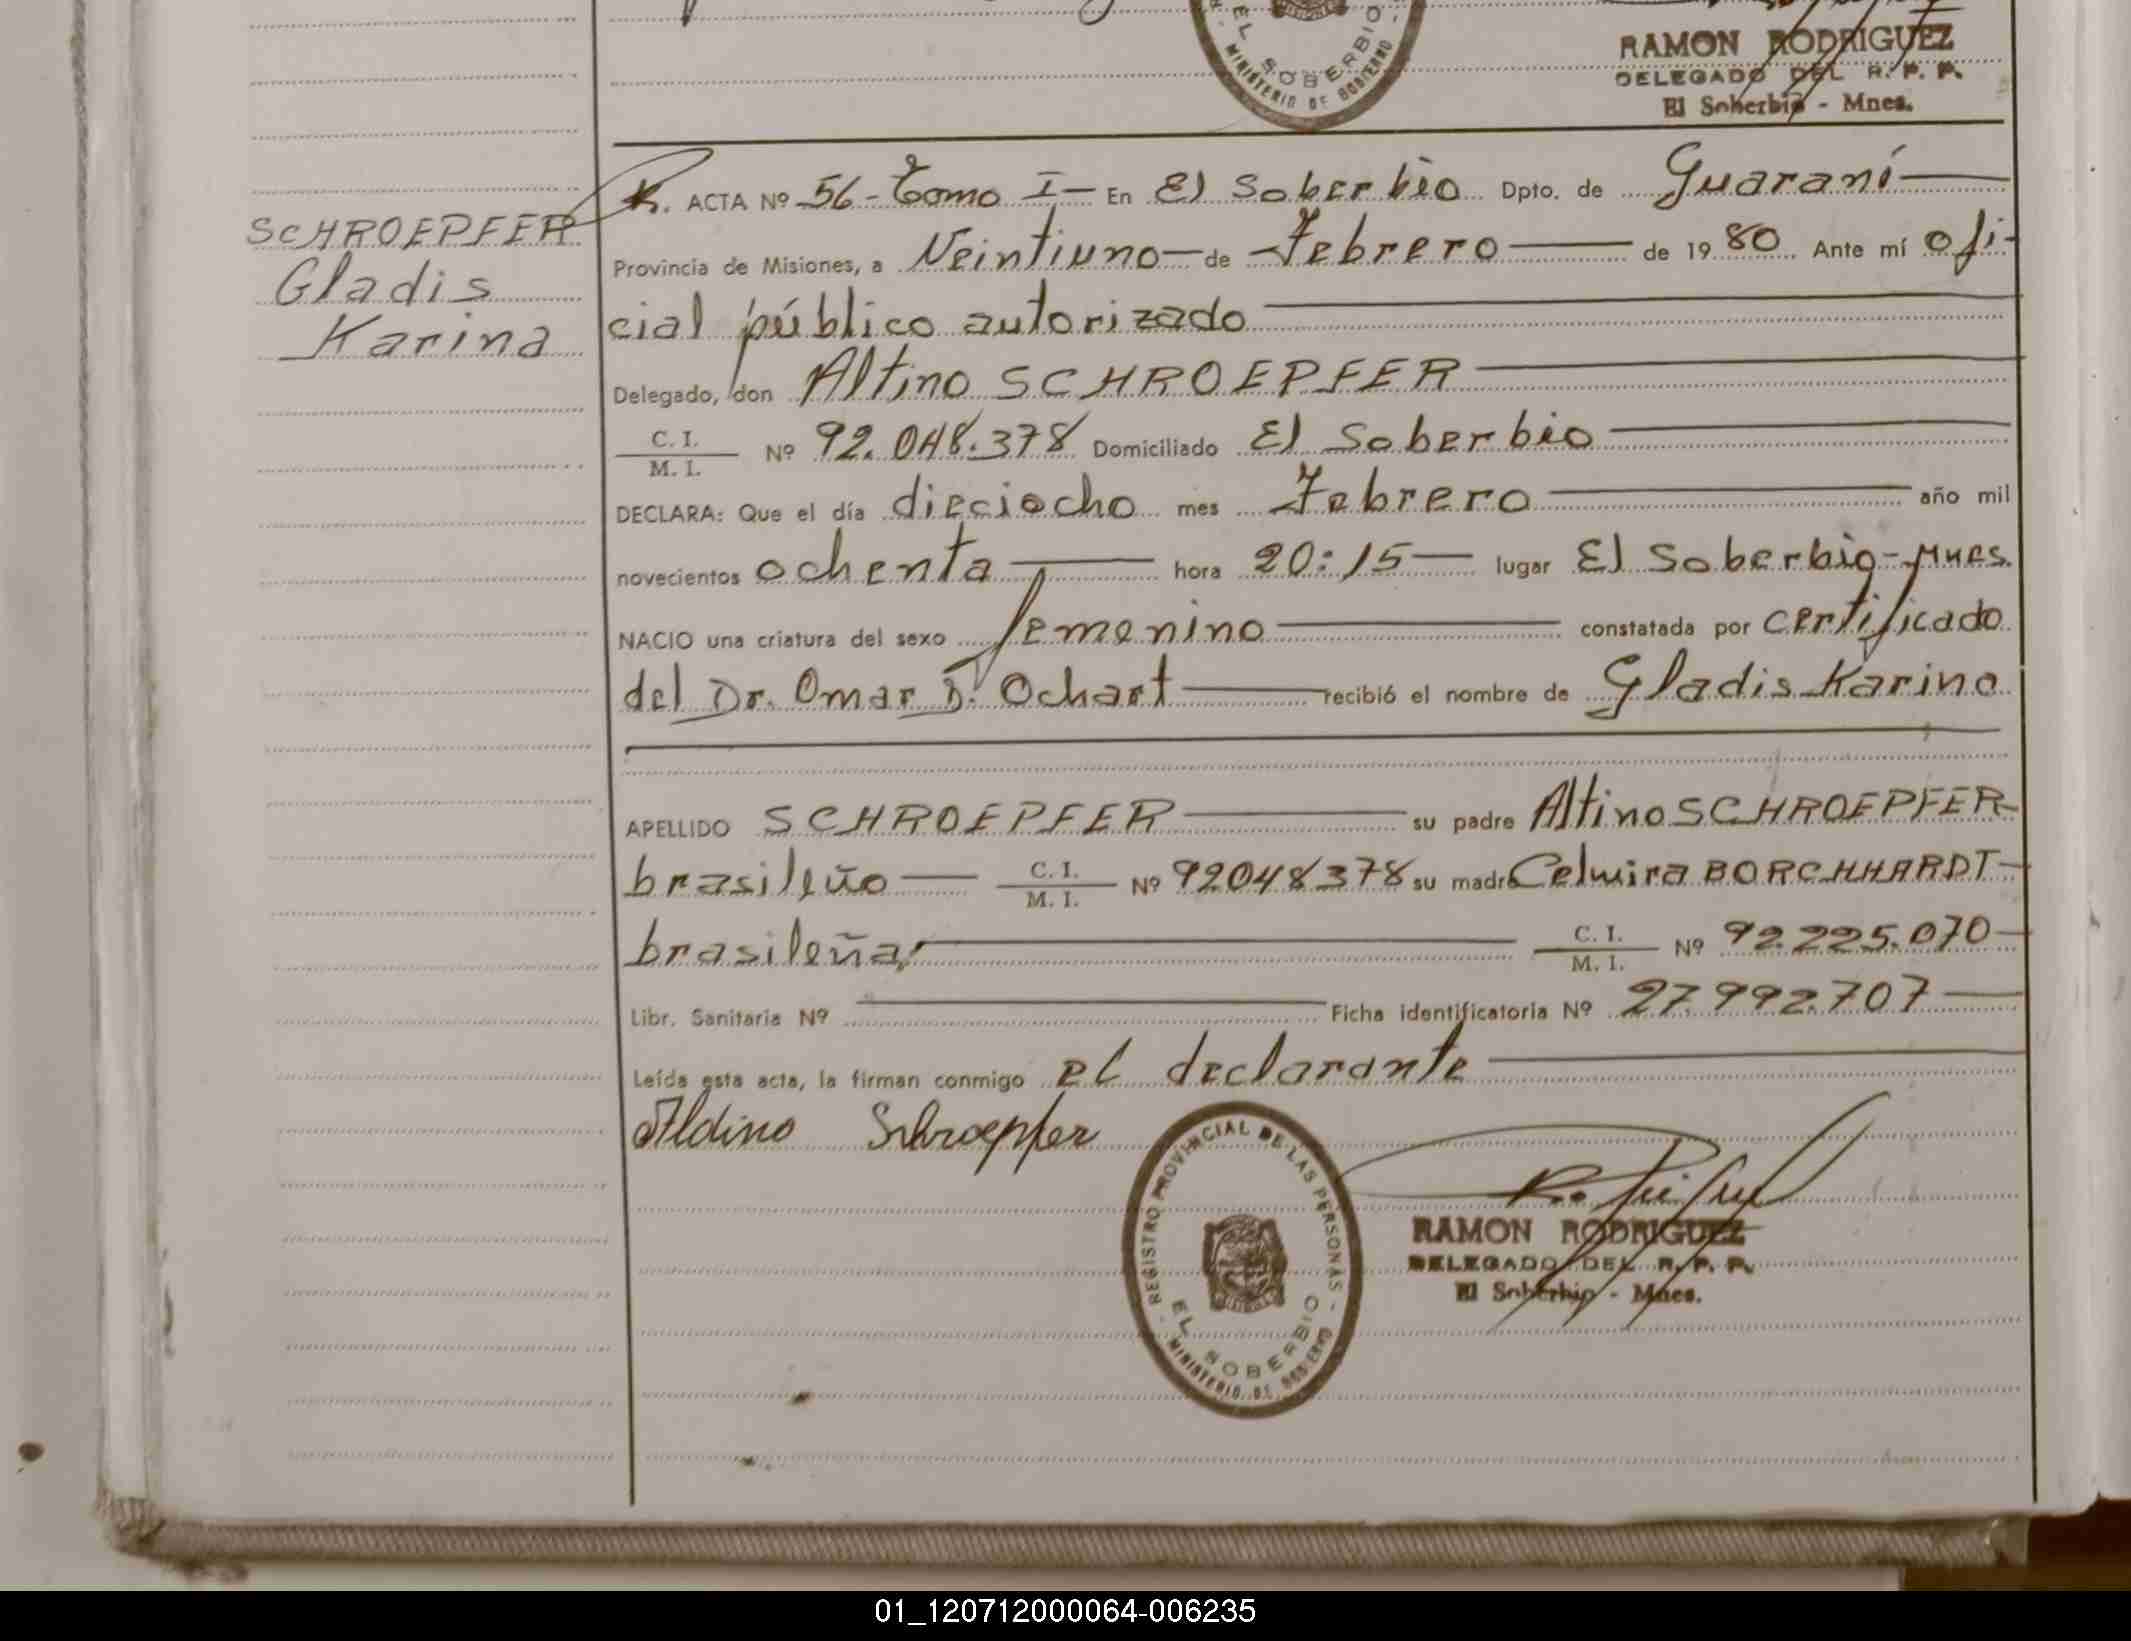 EL SOBERBIO
MINISTERIO DE GOBIERNO
RAMON RODRIGUEZ
DELEGADO DEL R. P. P.
El Soberbio - Mnes.
SCHROEPFER
Gladis
Karina
R. ACTA Nº 56-Tomo I- En El Soberbio Dpto. de Guaraní
Provincia de Misiones, a Veintiuno de Febrero de 1980 Ante mí ofi-
cial público autorizado
Delegado, don Altino SCHROEPFER
C. I. / M. I. Nº 92.048.378 Domiciliado El Soberbio
DECLARA: Que el día dieciocho mes Febrero año mil
novecientos ochenta hora 20:15 lugar El Soberbio-Mnes.
NACIO una criatura del sexo femenino constatada por certificado
del Dr. Omar D. Ochart recibió el nombre de Gladis Karina
APELLIDO SCHROEPFER su padre Altino SCHROEPFER-
brasileño C. I. / M. I. Nº 92048378 su madre Celmira BORCHHARDT
brasileña, C. I. / M. I. Nº 92.225.070
Libr. Sanitaria Nº Ficha identificatoria Nº 27.992.707
Leída esta acta, la firman conmigo el declarante
Aldino Schroepfer
REGISTRO PROVINCIAL DE LAS PERSONAS
EL SOBERBIO
MINISTERIO DE GOBIERNO
RAMON RODRIGUEZ
DELEGADO DEL R. P. P.
El Soberbio - Mnes.
01_120712000064-006235